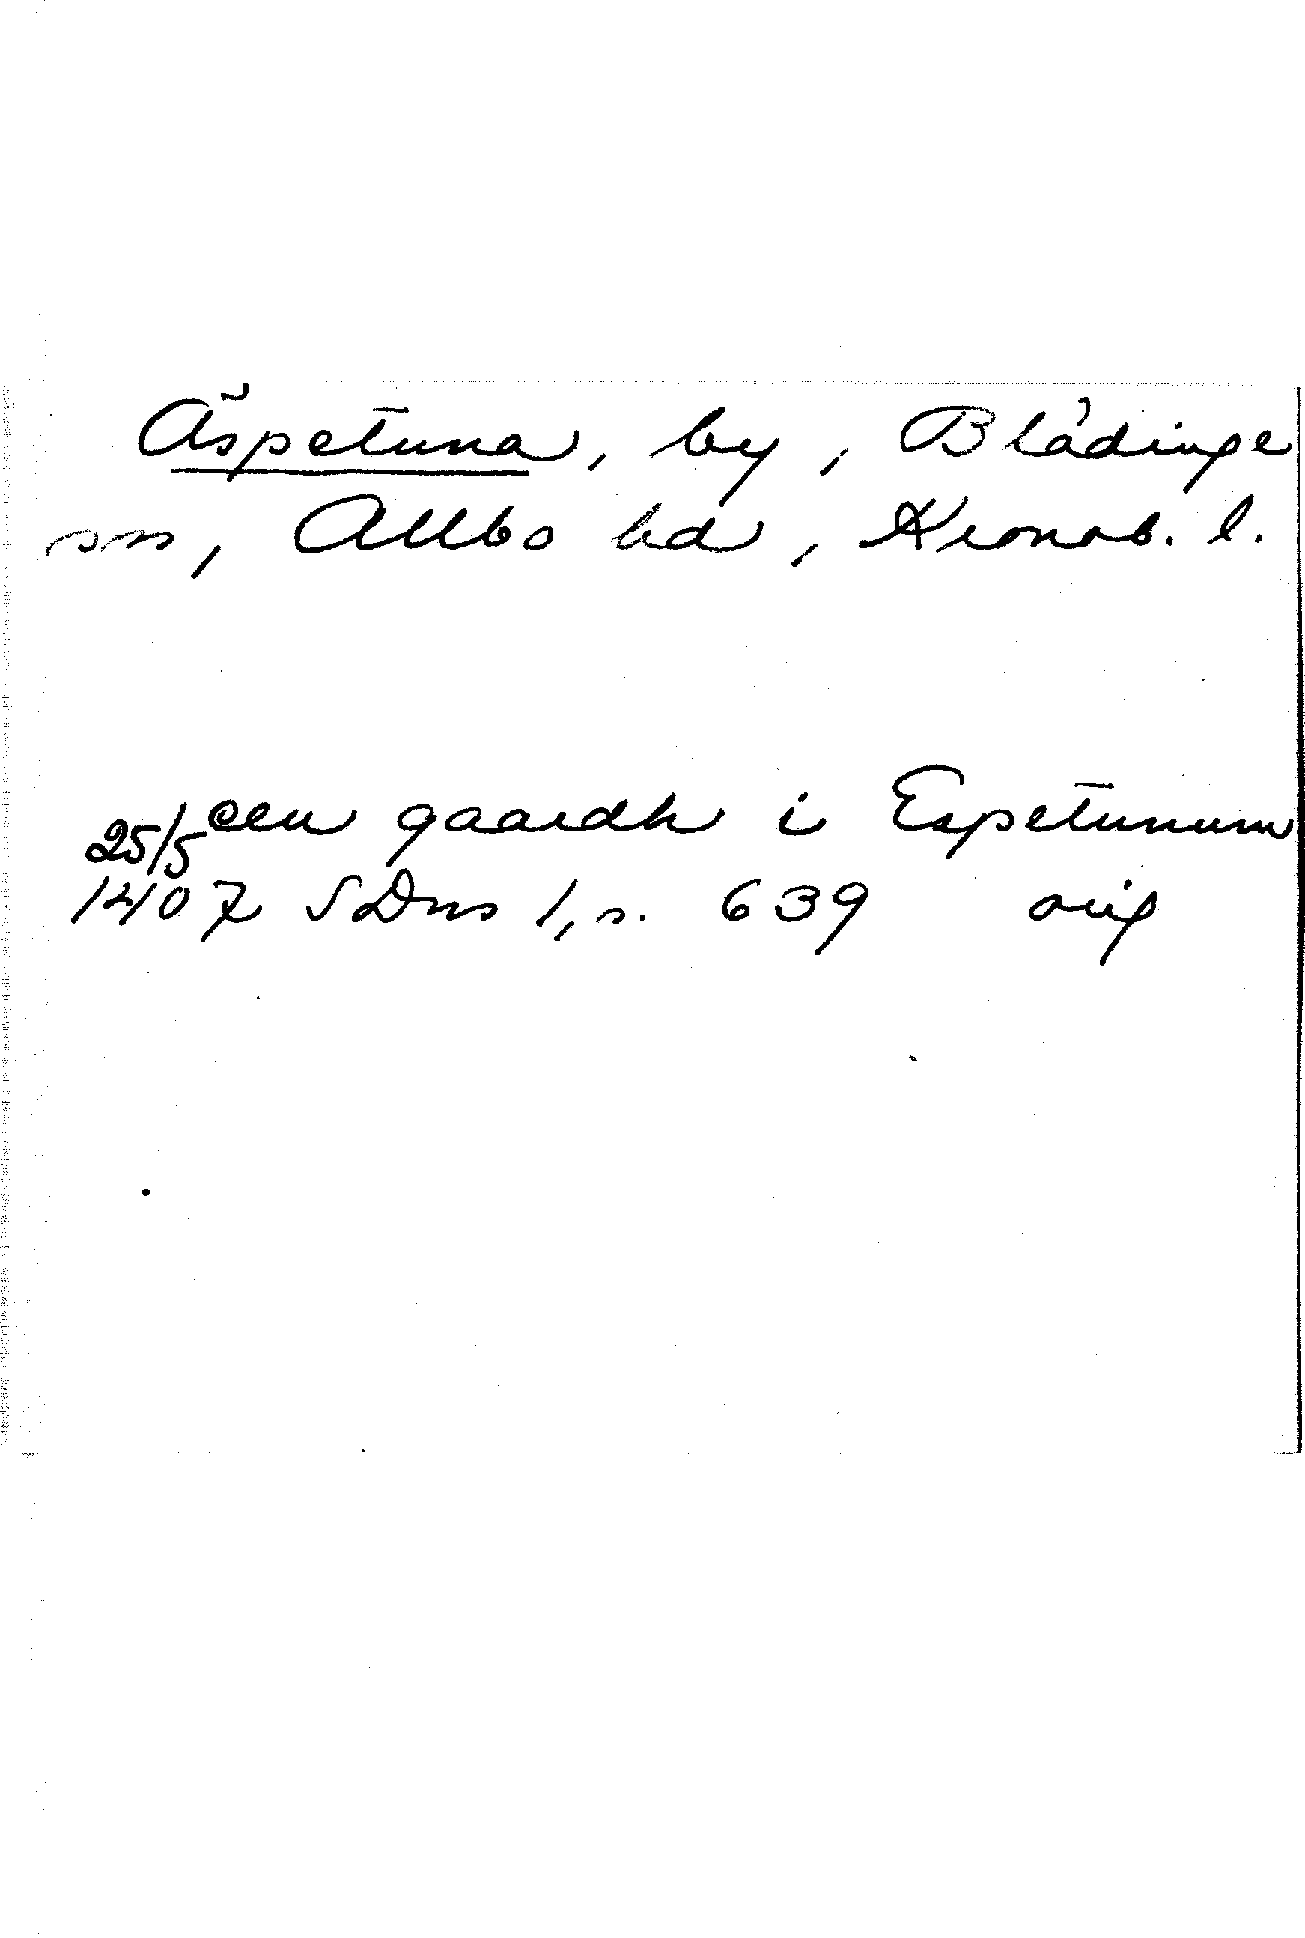 Äspetuna, by, Blädinge
sn, Allbo hd, Kronob. l.
een gaardh i Espetunum
25/5
1407 SDns 1, s. 639 orig